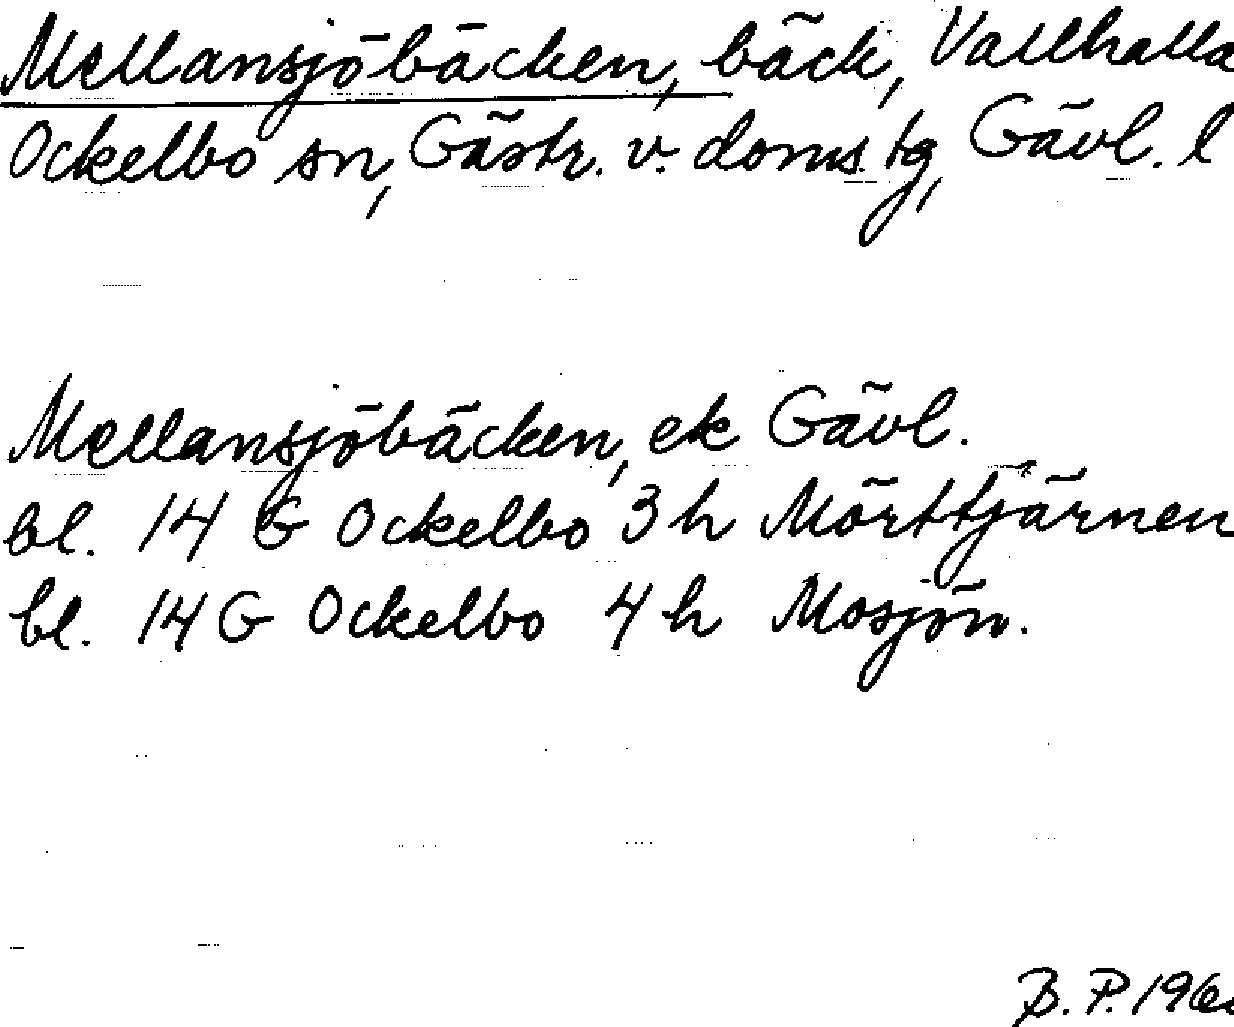 Mellansjöbäcken, bäck, Vallhalla
Ockelbo sn, Gästr. v. doms. tg, Gävl. l
Mellansjöbäcken, ek Gävl.
bl. 14 G Ockelbo 3 h Mörttjärnen
bl. 14 G Ockelbo 4 h Mosjön.
B. P.